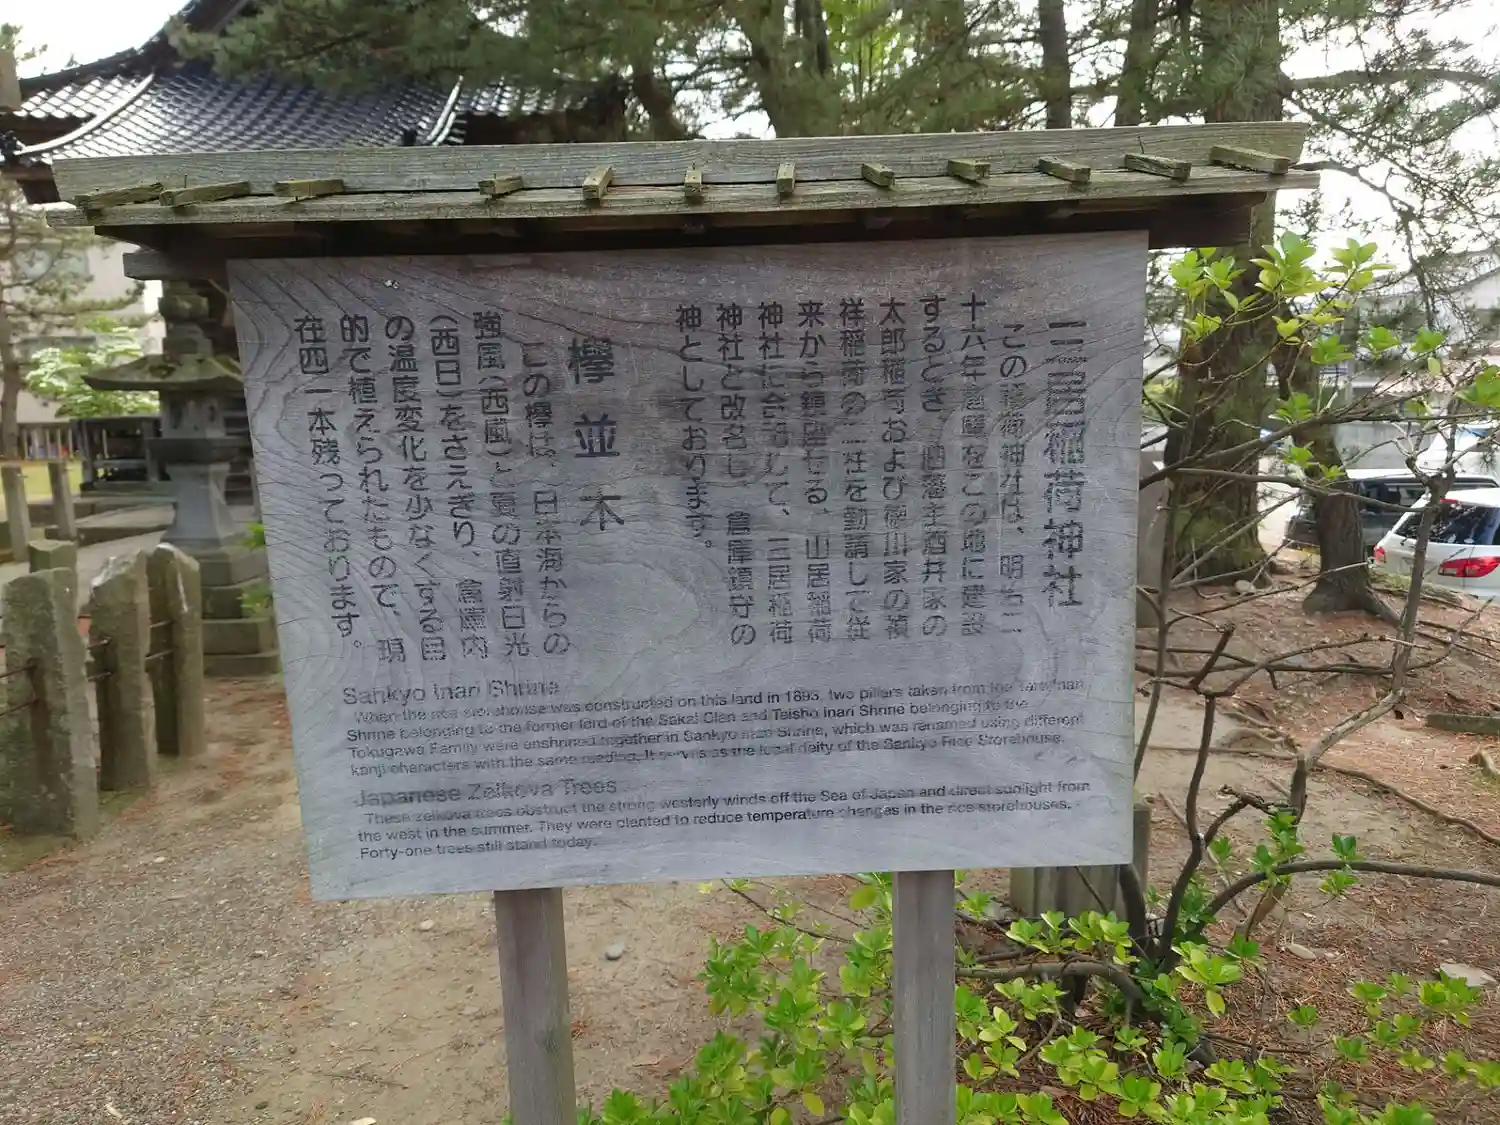 三居稲荷神社
この稲荷神社は、明治二
十六年倉庫をこの地に建設
するとき、酒藩主酒井家の
太郎稲荷および徳川家の禎
祥稲荷の二社を勧請して従
来から鎮座せる、山居稲荷
神社に合祀して、三居稲荷
神社と改名し、倉庫鎮守の
神としております。
欅並木
この欅は、日本海からの
強風(西風)と夏の直射日光
(西日)をさえぎり、倉庫内
の温度変化を少なくする目
的で植えられたもので、現
在四一本残っております。
Sankyo Inari Shrine
When the rice storehouse was constructed on this land in 1893, two pillers taken from the Taro Inari
Shrine belonging to the former lord of the Sakai Clan and Taisho Inari Shrine belonging to the
Tokugawa Family were enshrined together in Sankyo Inari Shrine, which was renamed using different
kanji characters with the same reading. It serves as the local deity of the Sankyo Rice Storehouse.
Japanese Zelkova Trees
These zelkova trees obstruct the strong westerly winds off the Sea of Japan and direct sunlight from
the west in the summer. They were planted to reduce temperature changes in the rice storehouses.
Forty-one trees still stand today.